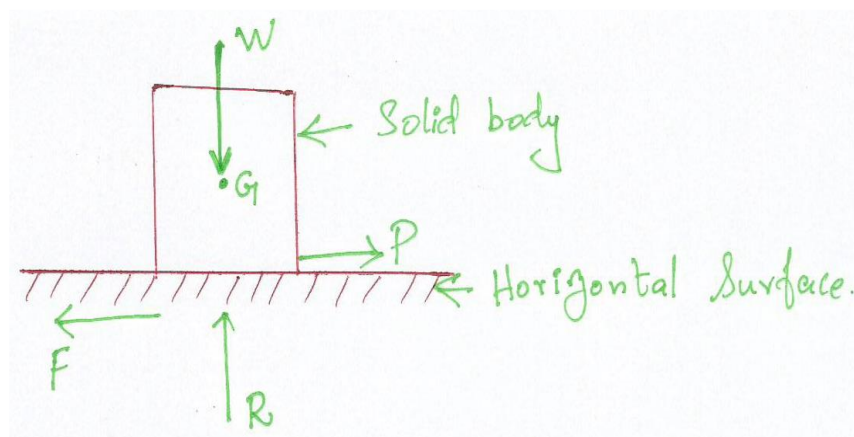 W
Solid body
G
P
Horizontal Surface.
F
R